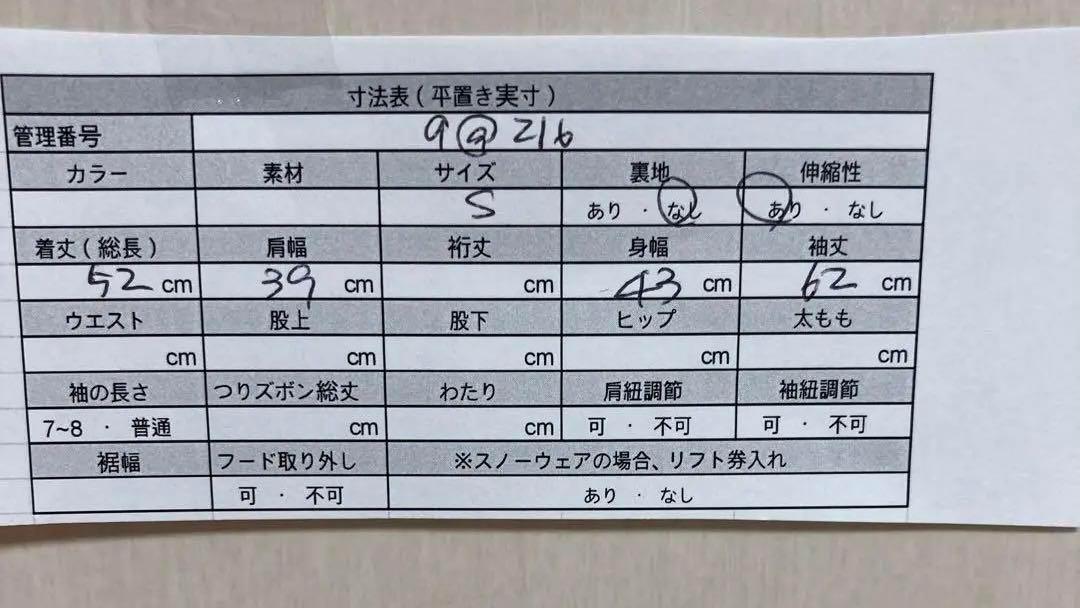 寸法表(平置き実寸)
管理番号 9@216
カラー 素材 サイズ 裏地 伸縮性
S あり · なし あり · なし
着丈(総長) 肩幅 裄丈 身幅 袖丈
52 cm 39 cm cm 43 cm 62 cm
ウエスト 股上 股下 ヒップ 太もも
cm cm cm cm cm
袖の長さ つりズボン総丈 わたり 肩紐調節 袖紐調節
7~8 · 普通 cm cm 可 · 不可 可 · 不可
裾幅 フード取り外し ※スノーウェアの場合、リフト券入れ
可 · 不可 あり · なし